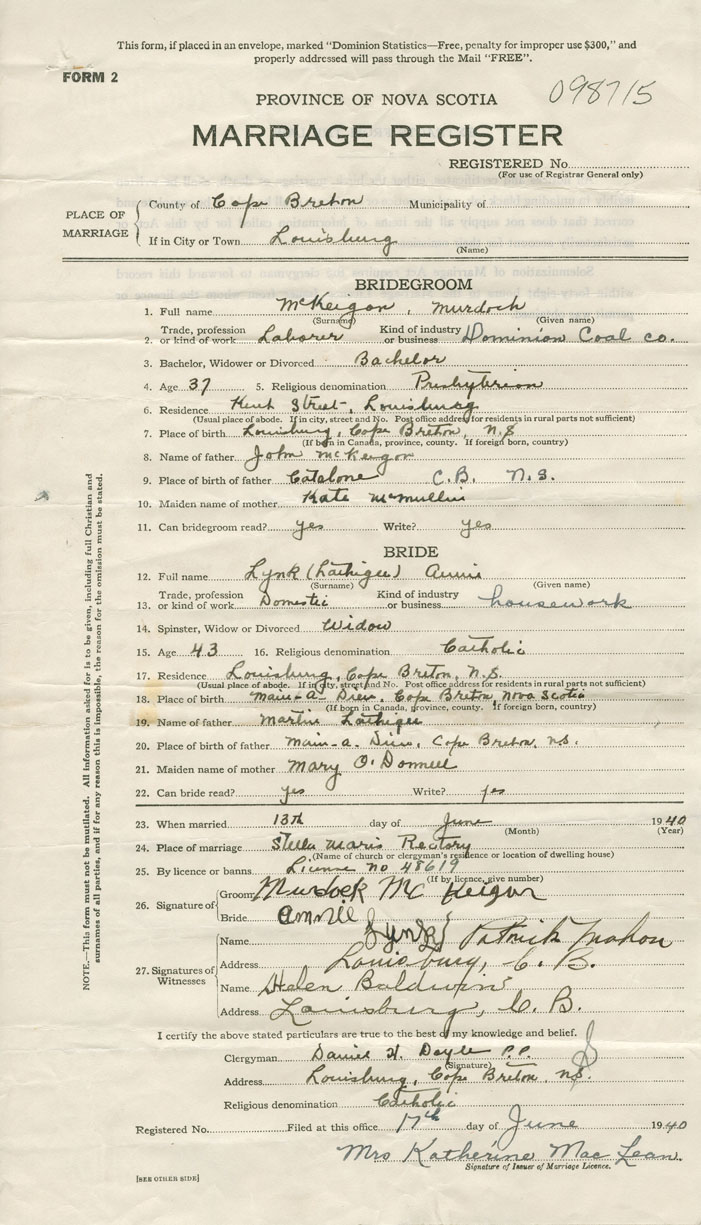 This form, if placed in an envelope, marked "Dominion Statistics—Free, penalty for improper use $300," and
properly addressed will pass through the Mail "FREE".
FORM 2
098715
PROVINCE OF NOVA SCOTIA
MARRIAGE REGISTER
REGISTERED No.
(For use of Registrar General only)
PLACE OF MARRIAGE
County of Cape Breton Municipality of
If in City or Town Louisburg
(Name)
BRIDEGROOM
1. Full name McKeigan, Murdoch
(Surname) (Given name)
2. Trade, profession or kind of work Laborer Kind of industry or business Dominion Coal co.
3. Bachelor, Widower or Divorced Bachelor
4. Age 37 5. Religious denomination Presbyterian
6. Residence Kent Street, Louisburg
(Usual place of abode. If in city, street and No. Post office address for residents in rural parts not sufficient)
7. Place of birth Louisburg, Cape Breton, N.S
(If born in Canada, province, county. If foreign born, country)
8. Name of father John McKeigan
9. Place of birth of father Catalone C.B. N.S.
10. Maiden name of mother Kate McMullin
11. Can bridegroom read? yes Write? yes
BRIDE
12. Full name Lynk (Lathigee) Annie
(Surname) (Given name)
13. Trade, profession or kind of work Domestic Kind of industry or business housework
14. Spinster, Widow or Divorced Widow
15. Age 43 16. Religious denomination Catholic
17. Residence Louisburg, Cape Breton, N.S.
(Usual place of abode. If in city, street and No. Post office address for residents in rural parts not sufficient)
18. Place of birth Main-a-Dieu, Cape Breton, Nova Scotia
(If born in Canada, province, county. If foreign born, country)
19. Name of father Martin Lathigee
20. Place of birth of father Main-a-Dieu, Cape Breton, N.S.
21. Maiden name of mother Mary O'Donnell
22. Can bride read? yes Write? yes
23. When married 13th day of June 1940
(Month) (Year)
24. Place of marriage Stella Maris Rectory
(Name of church or clergyman's residence or location of dwelling house)
25. By licence or banns License no 48619
(If by licence, give number)
26. Signature of
Groom Murdock McKeigan
Bride Annie Lynk
27. Signatures of Witnesses
Name Patrick Mahon
Address Louisburg, C. B.
Name Helen Baldwin
Address Louisburg, C. B.
I certify the above stated particulars are true to the best of my knowledge and belief.
Clergyman Daniel H. Doyle P.P.
(Signature)
Address Louisburg, Cape Breton, N.S.
Religious denomination Catholic
Registered No. Filed at this office 17th day of June 1940
Mrs Katherine Mac Lean.
Signature of Issuer of Marriage Licence.
[SEE OTHER SIDE]
NOTE.—This form must not be mutilated. All information asked for is to be given, including full Christian and
surnames of all parties, and if for any reason this is impossible, the reason for the omission must be stated.